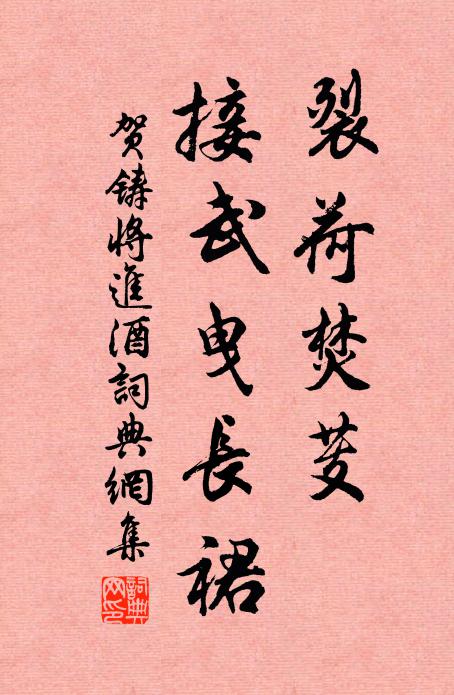 裂荷焚芰
接武曳長裙
贺鑄將進酒詞典網集
詞典网印